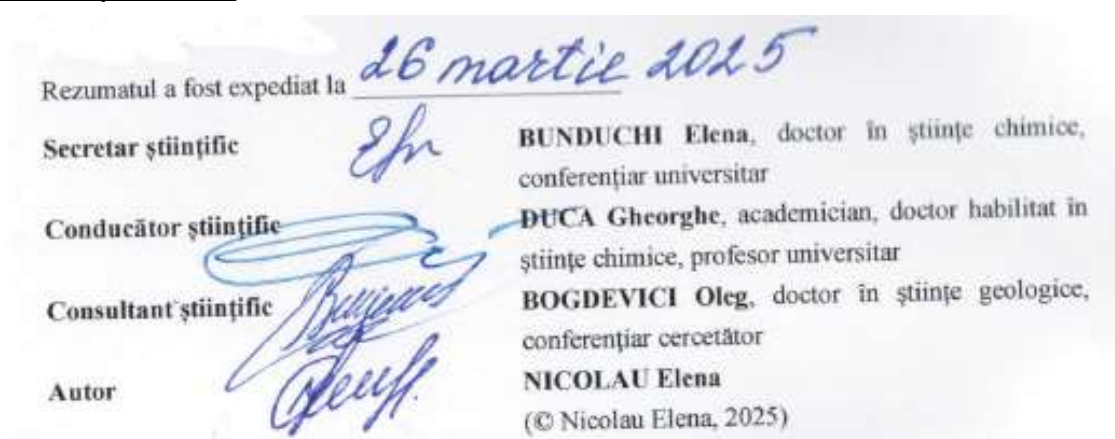 Rezumatul a fost expediat la 26 martie 2025
Secretar științific BUNDUCHI Elena, doctor în științe chimice,
conferențiar universitar
Conducător științific DUCA Gheorghe, academician, doctor habilitat în
științe chimice, profesor universitar
Consultant științific BOGDEVICI Oleg, doctor în științe geologice,
conferențiar cercetător
Autor NICOLAU Elena
(© Nicolau Elena, 2025)